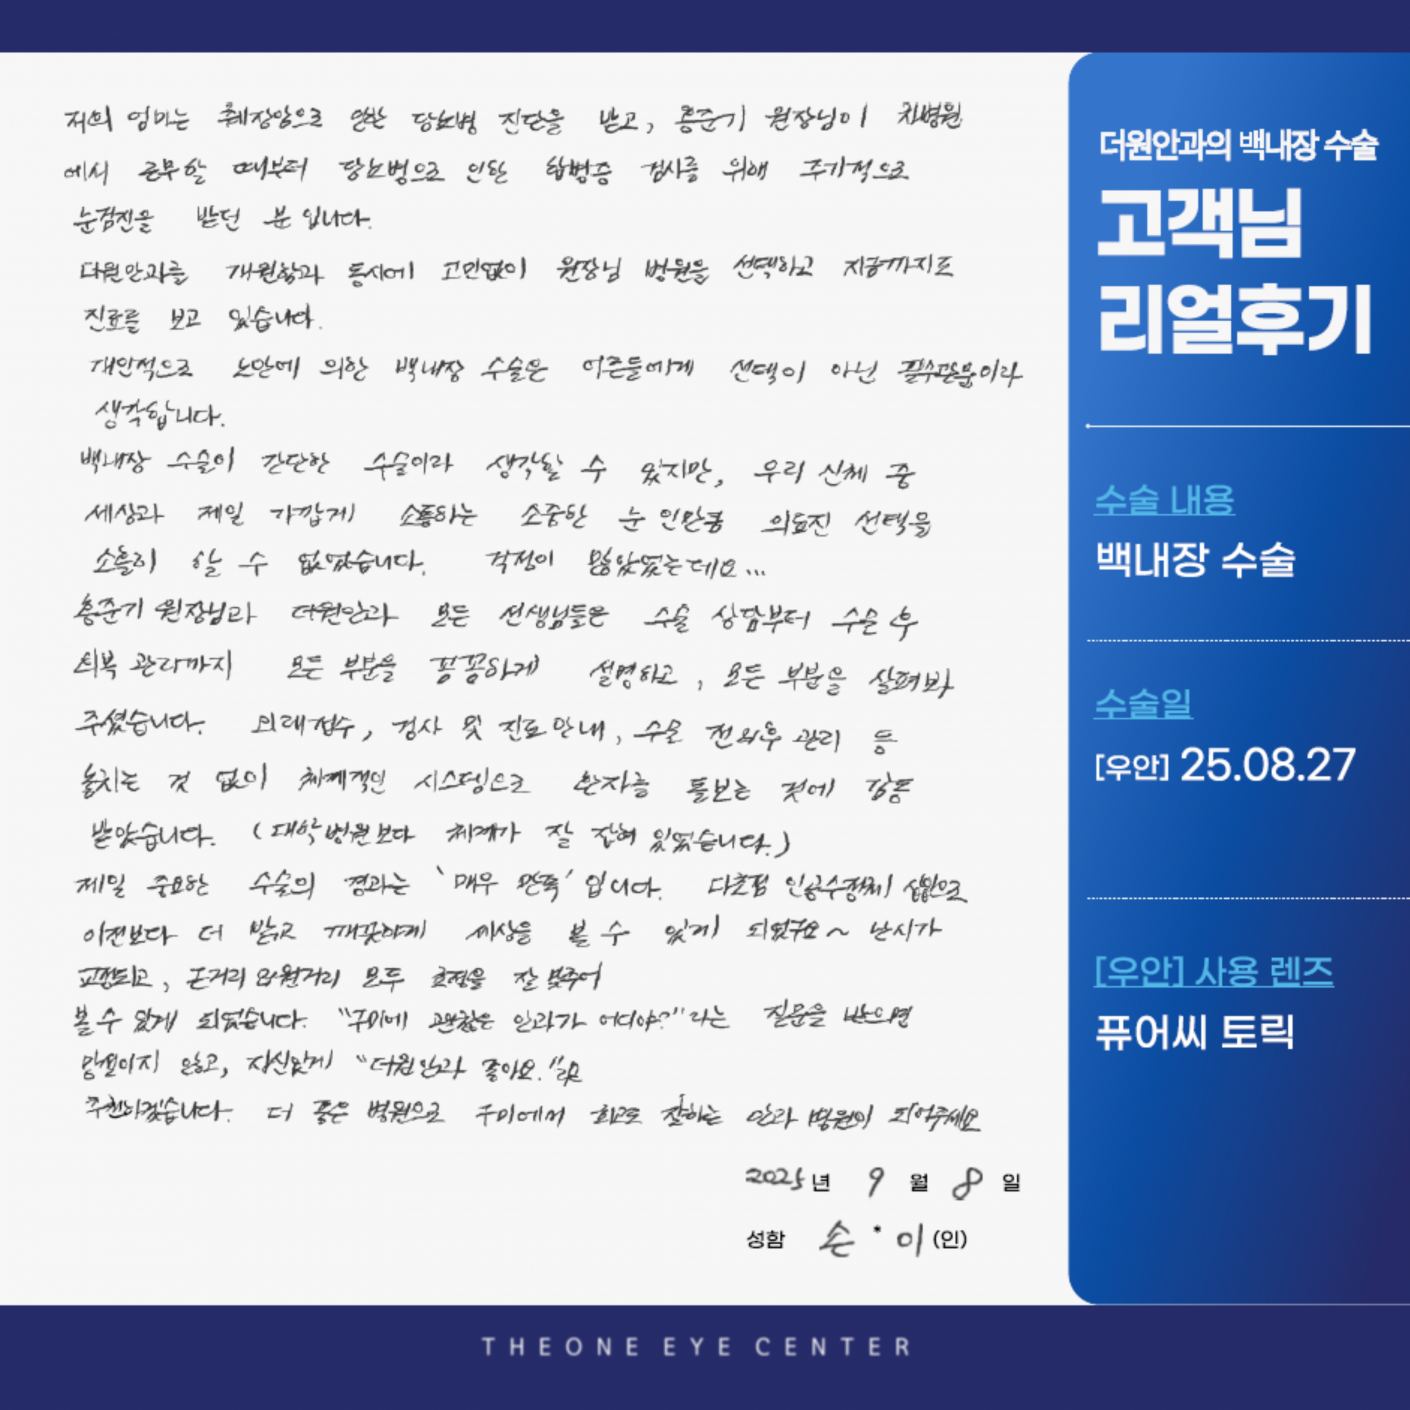 저의 엄마는 췌장암으로 인한 당뇨병 진단을 받고, 홍준기 원장님이 차병원
에서 근무할 때부터 당뇨병으로 인한 합병증 검사를 위해 주기적으로
눈검진을 받던 분 입니다.
더원안과를 개원함과 동시에 고민없이 원장님 병원을 선택하고 지금까지도
진료를 보고 있습니다.
개인적으로 노안에 의한 백내장 수술은 어른들에게 선택이 아닌 필수관문이라
생각합니다.
백내장 수술이 간단한 수술이라 생각할 수 있지만, 우리 신체 중
세상과 제일 가깝게 소통하는 소중한 눈 인만큼 의료진 선택을
소홀히 할 수 없었습니다. 걱정이 많았었는데요...
홍준기 원장님과 더원안과 모든 선생님들은 수술 상담부터 수술 후
회복 관리까지 모든 부분을 꼼꼼하게 설명하고, 모든 부분을 살펴봐
주셨습니다. 외래접수, 검사 및 진료안내, 수술 전의후 관리 등
놓치는 것 없이 체계적인 시스템으로 환자를 돌보는 것에 감동
받았습니다. (대학병원보다 체계가 잘 잡혀 있었습니다.)
제일 중요한 수술의 결과는 '매우 만족' 입니다. 다초점 인공수정체 삽입으로
이전보다 더 밝고 깨끗하게 세상을 볼 수 있게 되었구요~ 난시가
교정되고, 근거리 와 원거리 모두 초점을 잘 맞추어
볼 수 있게 되었습니다. "구미에 괜찮은 안과가 어디야?"라는 질문을 받으면
망설이지 않고, 자신있게 "더원안과 좋아요."라고
추천하겠습니다. 더 좋은 병원으로 구미에서 최고로 잘하는 안과 병원이 되어주세요
2025년 9월 8일
성함 손 * 이 (인)
더원안과의 백내장 수술
고객님
리얼후기
수술 내용
백내장 수술
수술일
[우안] 25.08.27
[우안] 사용 렌즈
퓨어씨 토릭
THEONE EYE CENTER